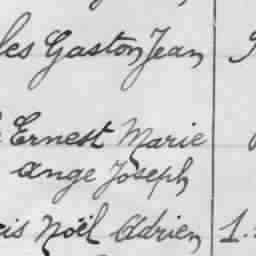 Gaston Jean
Ernest Marie
ange Joseph
Noël Adrien 1.